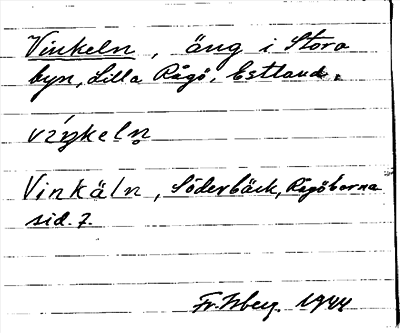 Vinkeln, äng i Stora
byn, Lilla Rågö, Estland.
vı́ŋkeln̥
Vinkäln, Söderbäck, Rågöborna
sid. 7.
1944